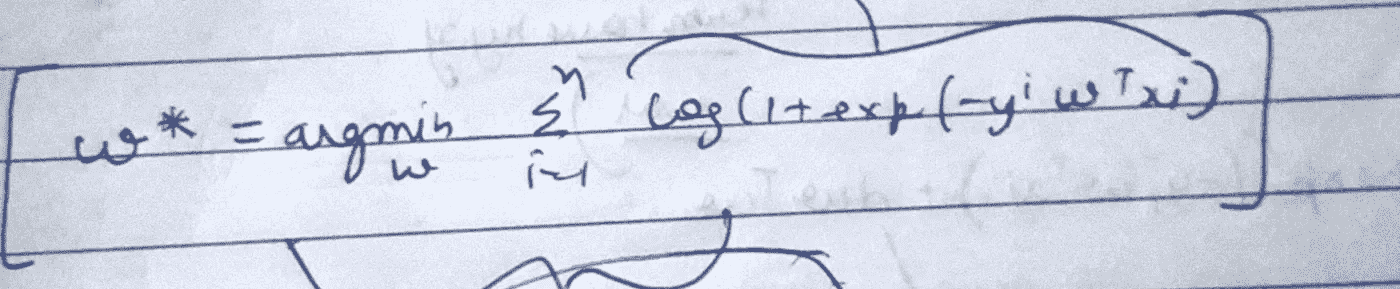 w* = argmin_w Σ_{i=1}^n log(1+exp(-y^i w^T xi)